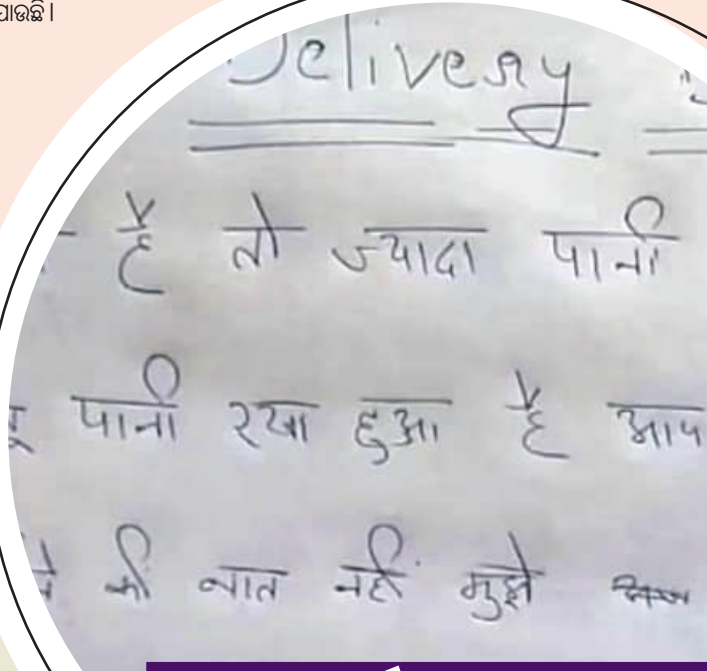 ପାଉଛି।
Delivery
है तो ज्यादा पानी
पानी रखा हुआ है आप
की बात नहीं मुझे